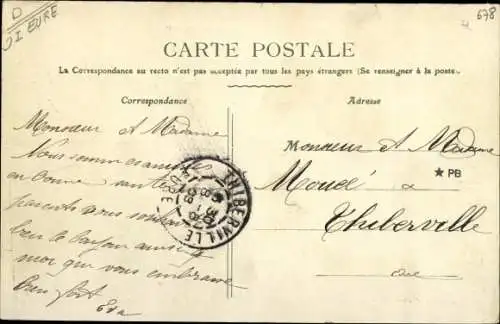 D
DI EURE
678
CARTE POSTALE
La Correspondance au recto n'est pas acceptée par tous les pays étrangers (Se renseigner à la poste.
Correspondance
Adresse
Monsieur et Madame
Nous sommes arrivés
en bonne santé
parents vous souhaitent
bien le bonjour ainsi que
moi qui vous embrasse
bien fort
Monsieur et Madame
Moudé a
★ PB
Thiberville
THIBERVILLE
EURE